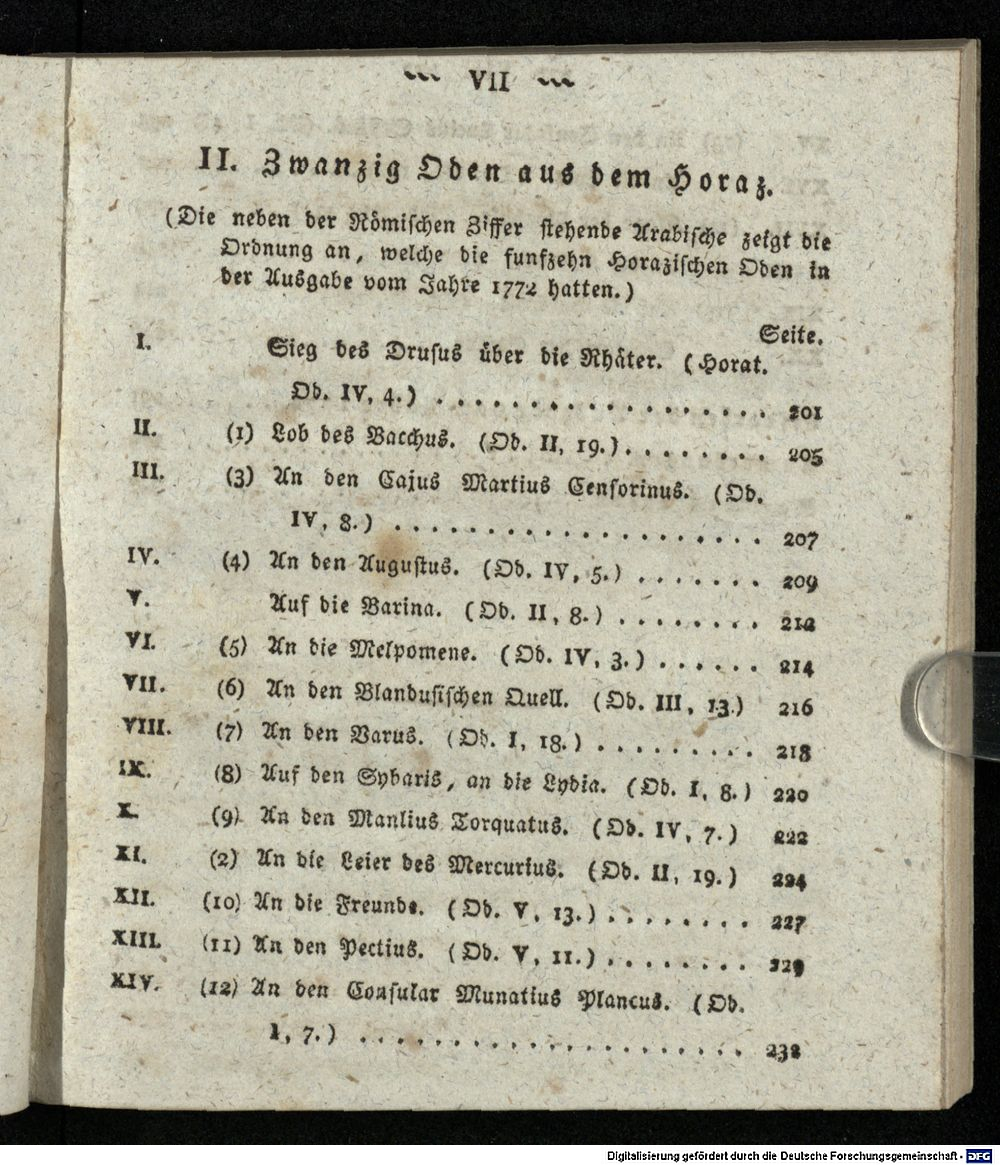 VII
II. Zwanzig Oden aus dem Horaz.
(Die neben der Römischen Ziffer stehende Arabische zeigt die
Ordnung an, welche die funfzehn Horazischen Oden in
der Ausgabe vom Jahre 1772 hatten.)
Seite.
I. Sieg des Drusus über die Rhäter. (Horat.
Od. IV, 4.) . . . . . . . . . . . . . . . . . . 201
II. (1) Lob des Bacchus. (Od. II, 19.) . . . . . . . . 205
III. (3) An den Cajus Martius Censorinus. (Od.
IV, 8.) . . . . . . . . . . . . . . . . . . . . 207
IV. (4) An den Augustus. (Od. IV, 5.) . . . . . . . 209
V. Auf die Barina. (Od. II, 8.) . . . . . . . . 212
VI. (5) An die Melpomene. (Od. IV, 3.) . . . . . . 214
VII. (6) An den Blandusischen Quell. (Od. III, 13.) 216
VIII. (7) An den Varus. (Od. I, 18.) . . . . . . . . . 218
IX. (8) Auf den Sybaris, an die Lydia. (Od. I, 8.) 220
X. (9) An den Manlius Torquatus. (Od. IV, 7.) 222
XI. (2) An die Leier des Mercurius. (Od. II, 19.) 224
XII. (10) An die Freunde. (Od. V, 13.) . . . . . . . . 227
XIII. (11) An den Pectius. (Od. V, 11.) . . . . . . . . 229
XIV. (12) An den Consular Munatius Plancus. (Od.
I, 7.) . . . . . . . . . . . . . . . . . . . . . 232
Digitalisierung gefördert durch die Deutsche Forschungsgemeinschaft - DFG